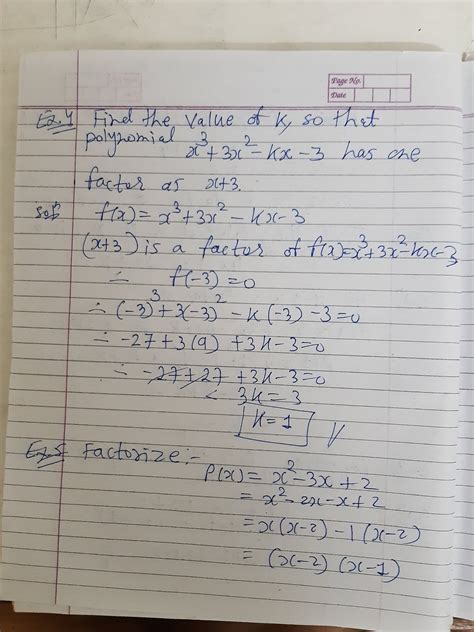 Page No.
Date
Ex.4 Find the value of k, so that
polynomial x³+3x²-kx-3 has one
factor as x+3.
solⁿ f(x)= x³+3x²-kx-3
(x+3) is a factor of f(x)=x³+3x²-kx-3
∴ f(-3)=0
∴ (-3)³+3(-3)²-k(-3)-3=0
∴ -27+3(9)+3k-3=0
∴ -27+27+3k-3=0
∴ 3k=3
k=1
Ex.5 Factorize:-
P(x)= x²-3x+2
= x²-2x-x+2
= x(x-2)-1(x-2)
= (x-2)(x-1)